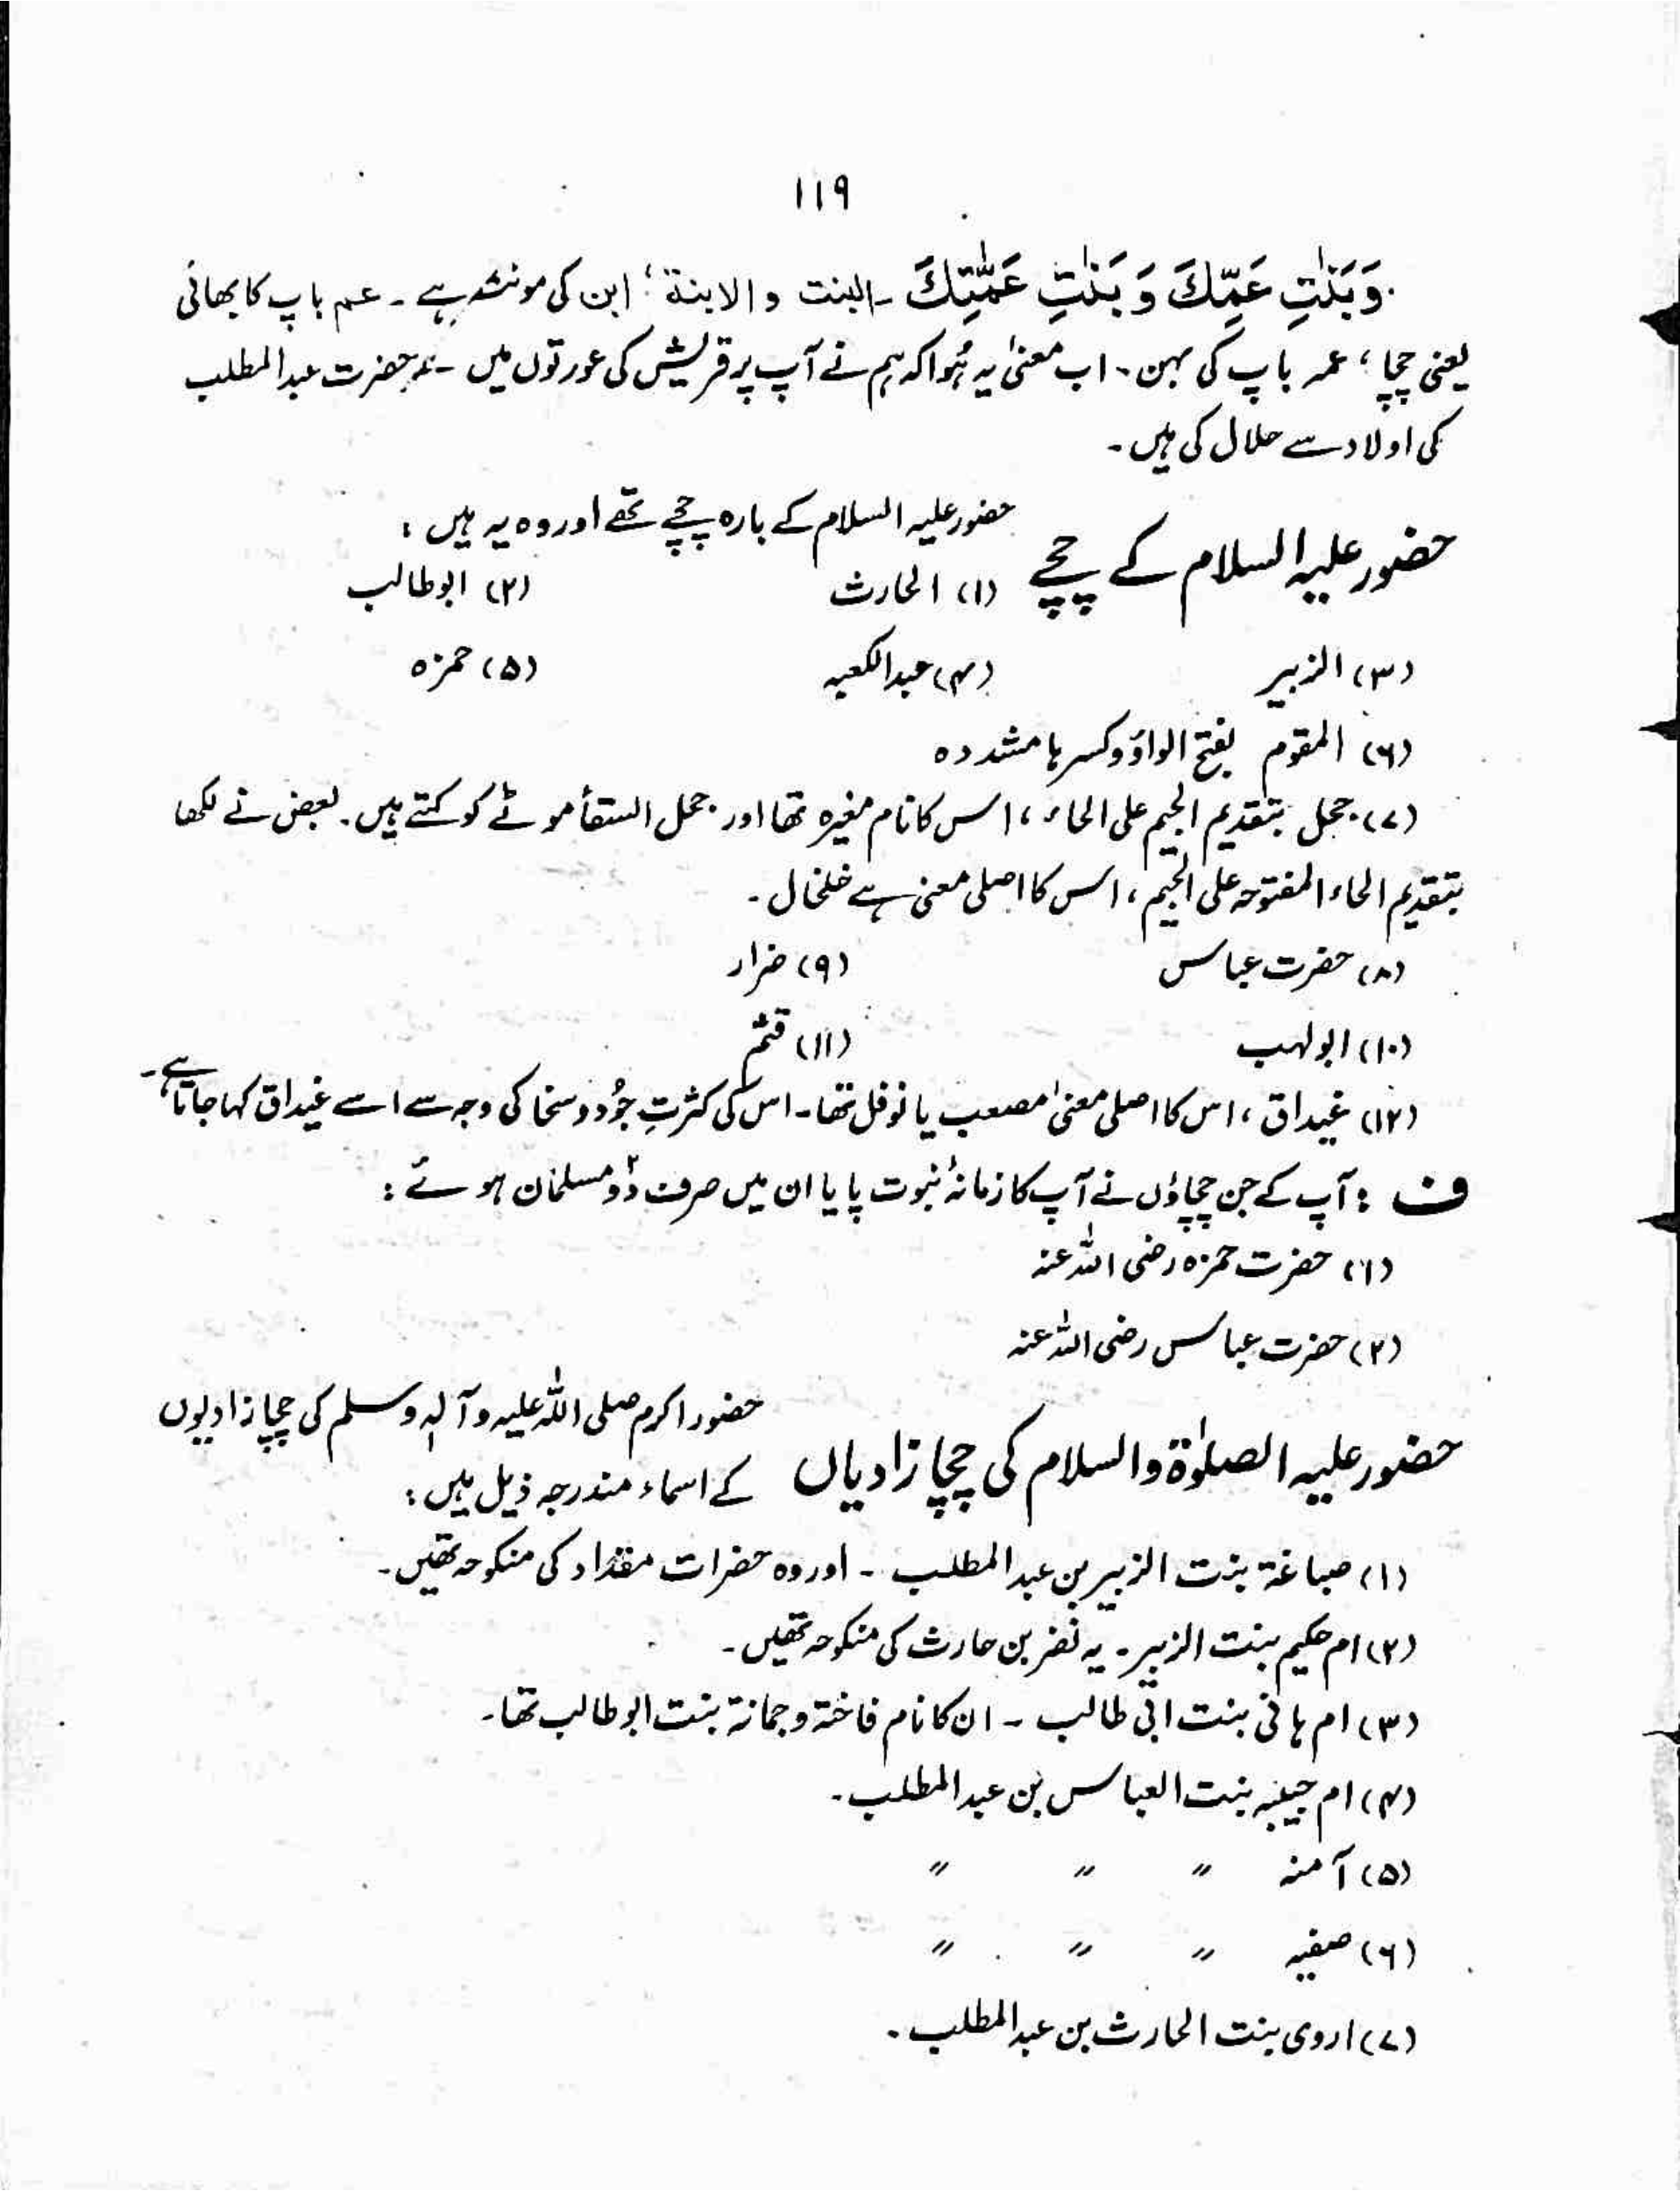 ۱۱۹
وَبَنٰتِ عَمِّكَ وَ بَنٰتِ عَمّٰتِكَ ۔ البنت و الابنۃ ؛ ابن کی مونث ہے ۔ عم باپ کا بھائی
یعنی چچا ؛ عمہ باپ کی بہن ۔ اب معنیٰ یہ ہُوا کہ ہم نے آپ پر قریش کی عورتوں میں ۔ حضرت عبدالمطلب
کی اولاد سے حلال کی ہیں ۔
حضور علیہ السلام کے چچے حضور علیہ السلام کے بارہ چچے تھے اور وہ یہ ہیں :
(۱) الحارث (۲) ابوطالب
(۳) الزبیر (۴) عبدالکعبہ (۵) حمزہ
(۶) المقوم بفتح الواؤ وکسر ہا مشددہ
(۷) جحل بتقدیم الجیم علی الحاء ، اس کا نام مغیرہ تھا اور جحل السقأ موٹے کو کہتے ہیں ۔ بعض نے لکھا
بتقدیم الحاء المفتوحہ علی الجیم ، اس کا اصلی معنی ہے خلخال ۔
(۸) حضرت عباس (۹) ضرار
(۱۰) ابولہب (۱۱) قثم
(۱۲) غیداق ، اس کا اصلی معنیٰ مصعب یا نوفل تھا ۔ اس کی کثرتِ جُود و سخا کی وجہ سے اسے غیداق کہا جاتا ہے ۔
ف : آپ کے جن چچاؤں نے آپ کا زمانۂ نبوت پایا ان میں صرف دو مسلمان ہوئے :
(۱) حضرت حمزہ رضی اللہ عنہ
(۲) حضرت عباس رضی اللہ عنہ
حضور علیہ الصلوٰۃ والسلام کی چچازادیاں حضور اکرم صلی اللہ علیہ وآلہٖ وسلم کی چچازادیوں
کے اسماء مندرجہ ذیل ہیں :
(۱) صباغۃ بنت الزبیر بن عبدالمطلب ۔ اور وہ حضرات مقداد کی منکوحہ تھیں ۔
(۲) ام حکیم بنت الزبیر ۔ یہ نضر بن حارث کی منکوحہ تھیں ۔
(۳) ام ہانی بنت ابی طالب ۔ ان کا نام فاختۃ و جمانۃ بنت ابوطالب تھا ۔
(۴) ام حبیبہ بنت العباس بن عبدالمطلب ۔
(۵) آمنہ 〃 〃 〃
(۶) صفیہ 〃 〃 〃
(۷) اروی بنت الحارث بن عبدالمطلب ۔